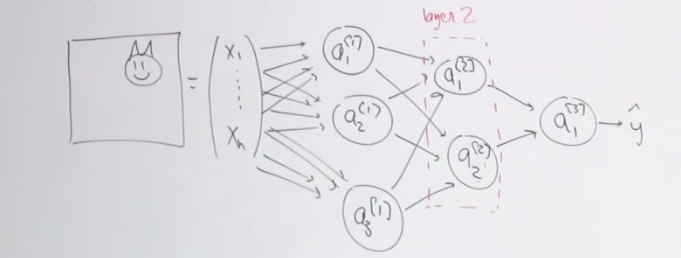 layer 2
x₁
xₙ
=
a₁^[1]
a₂^[1]
a₃^[1]
a₁^[2]
a₂^[2]
a₁^[3]
ŷ